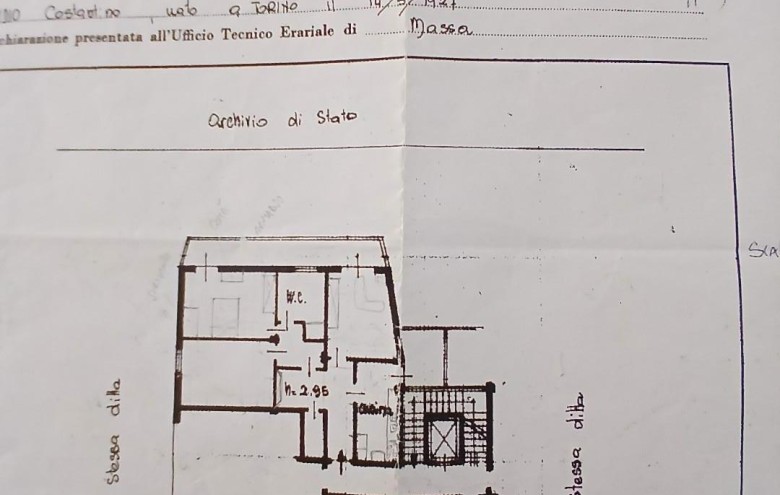 Costantino, nato a TORINO il 14/5/1927
chiarazione presentata all'Ufficio Tecnico Erariale di Massa
Archivio di Stato
W.C.
h= 2.95
cucina
Stessa ditta
Stessa ditta